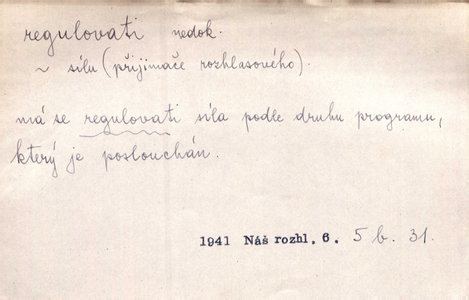 regulovati nedok.
~ sílu (přijímače rozhlasového).
má se regulovati síla podle druhu programu,
který je poslouchán.
1941 Náš rozhl. 6. 5 b. 31.